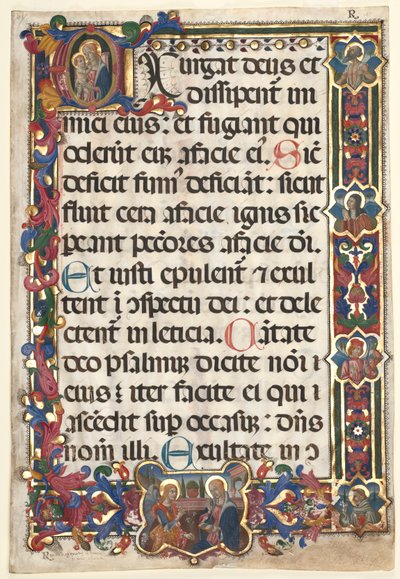 R
Exurgat deus et
dissipent' ini
mici eius: et fugiant qui
oderūt eū afacie ei'. Sic̄
deficit fum' deficiāt: sicut
fluit cera afacie ignis sic
pereant peccōres afacie dī.
Et iusti epulent' ⁊ exul
tent ī ɔspectu dei: et dele
ctent' in leticia. Cātate
deo psalmū dicite nōi
eius: iter facite ei qui
ascēdit suꝑ occasū: dn̄s
nom̄ illi. Exultate in ɔ